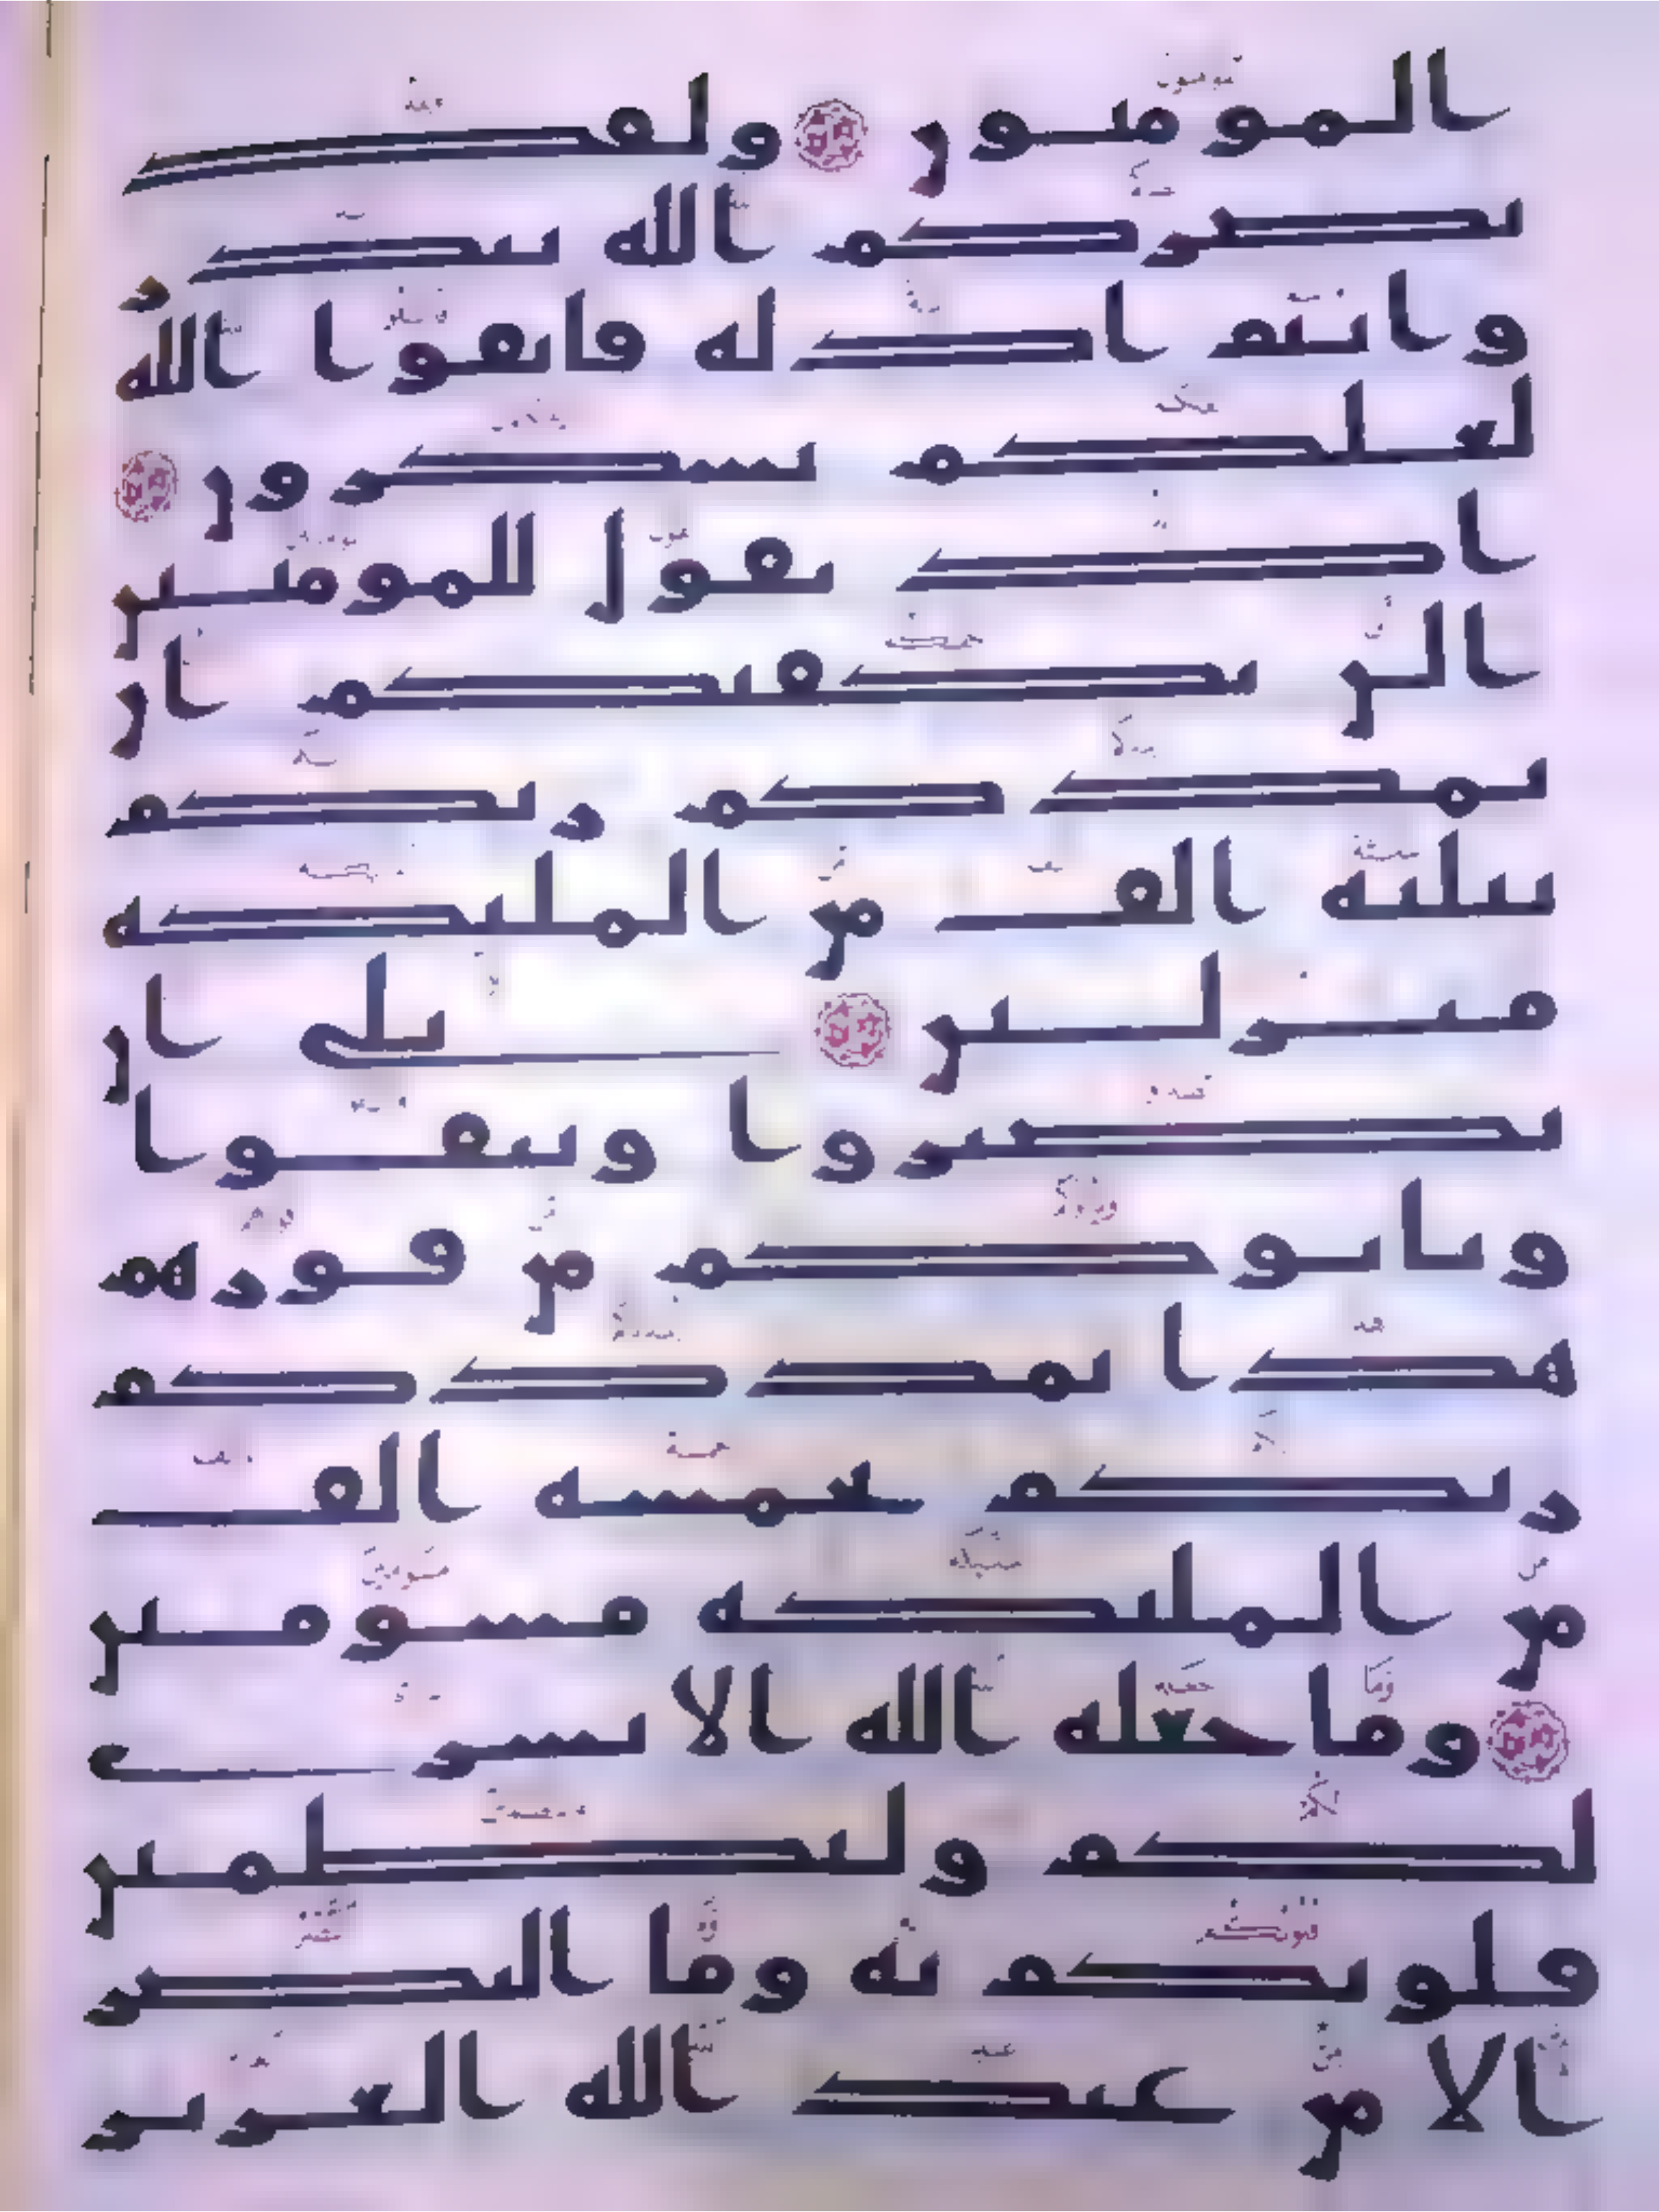 المومنون ولقد
نصركم الله ببدر
وانتم اذله فاتقوا الله
لعلكم تشكرون
اذ تقول للمومنين
الن يكفيكم ان
يمدكم ربكم
بثلثه الف من الملئكه
منزلين بلى ان
تصبروا وتتقوا
وياتوكم من فورهم
هذا يمددكم
ربكم بخمسه الف
من الملئكه مسومين
وما جعله الله الا بشرى
لكم ولتطمين
قلوبكم به وما النصر
الا من عند الله العزيز